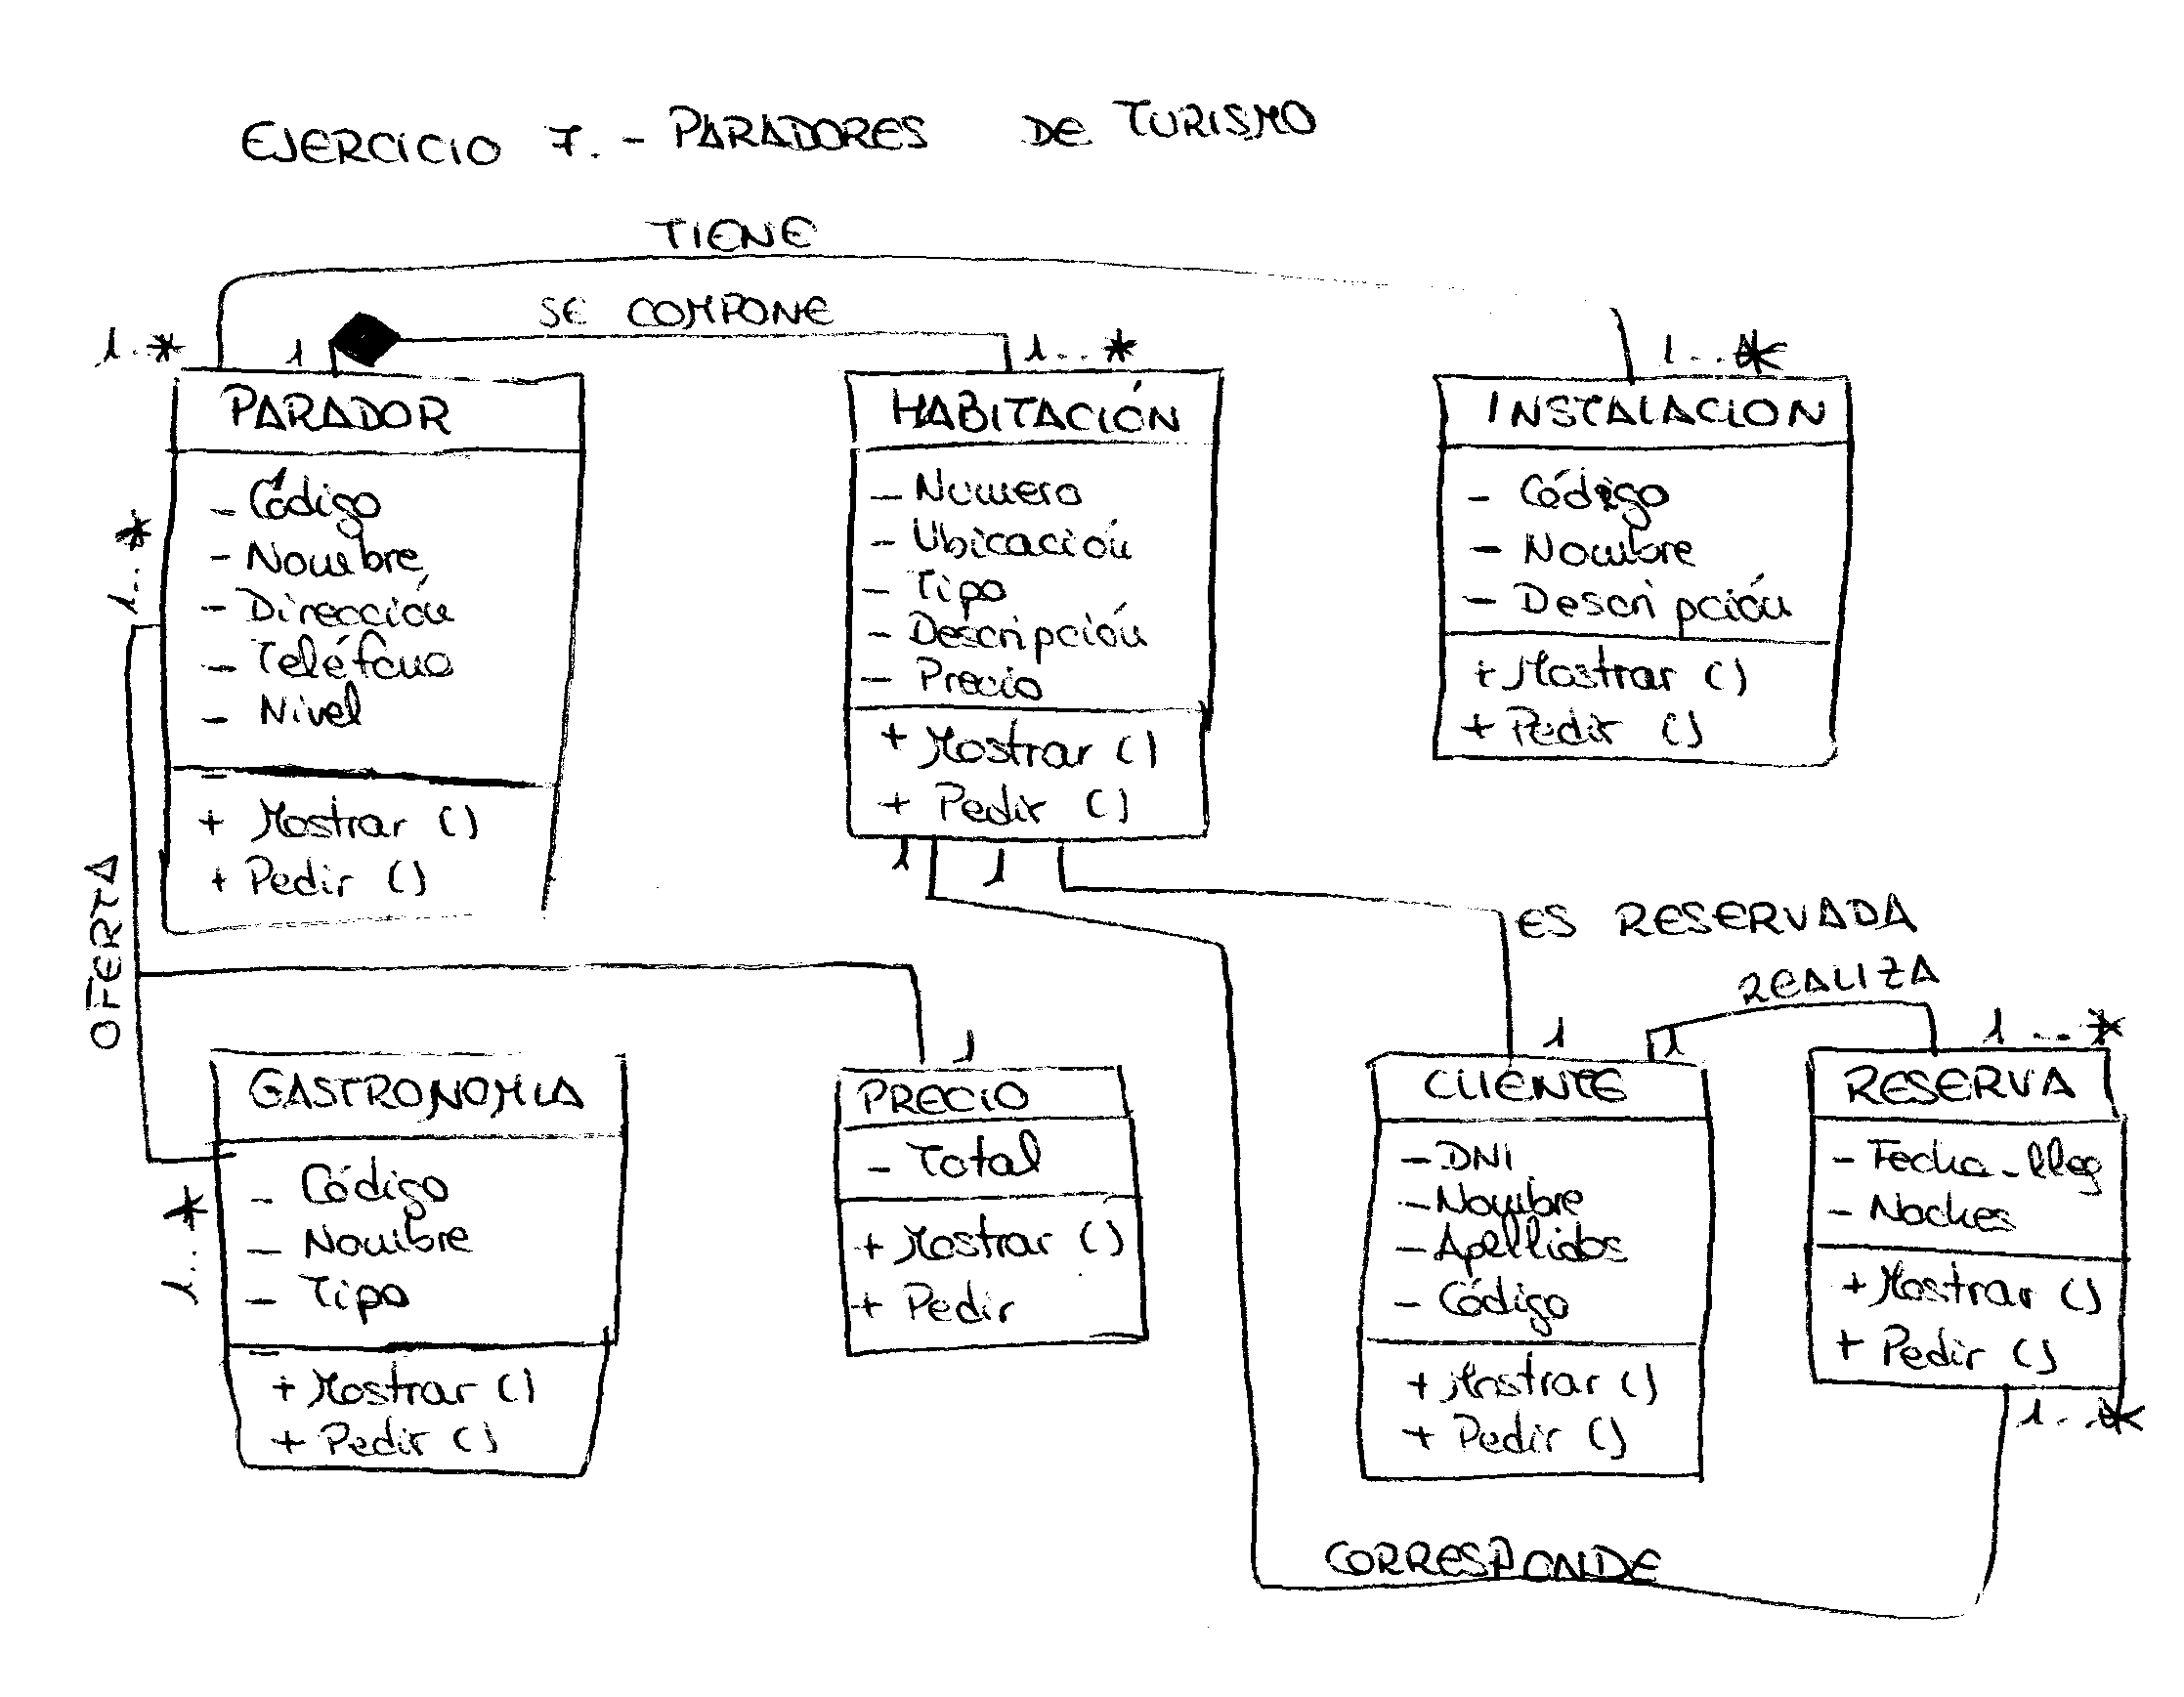 EJERCICIO 7.- PARADORES DE TURISMO
TIENE
SE COMPONE
1..*
1
1..*
1..*
PARADOR
- Código
- Nombre
- Dirección
- Teléfono
- Nivel
+ Mostrar ()
+ Pedir ()
HABITACIÓN
- Numero
- Ubicación
- Tipo
- Descripción
- Precio
+ Mostrar ()
+ Pedir ()
INSTALACION
- Código
- Nombre
- Descripción
+ Mostrar ()
+ Pedir ()
1..*
OFERTA
1
1
ES RESERVADA
REALIZA
1
1
1
1...*
GASTRONOMIA
- Código
- Nombre
- Tipo
+ Mostrar ()
+ Pedir ()
1..*
PRECIO
- Total
+ Mostrar ()
+ Pedir
CLIENTE
- DNI
- Nombre
- Apellidos
- Código
+ Mostrar ()
+ Pedir ()
RESERVA
- Fecha_lleg
- Noches
+ Mostrar ()
+ Pedir ()
1..*
CORRESPONDE